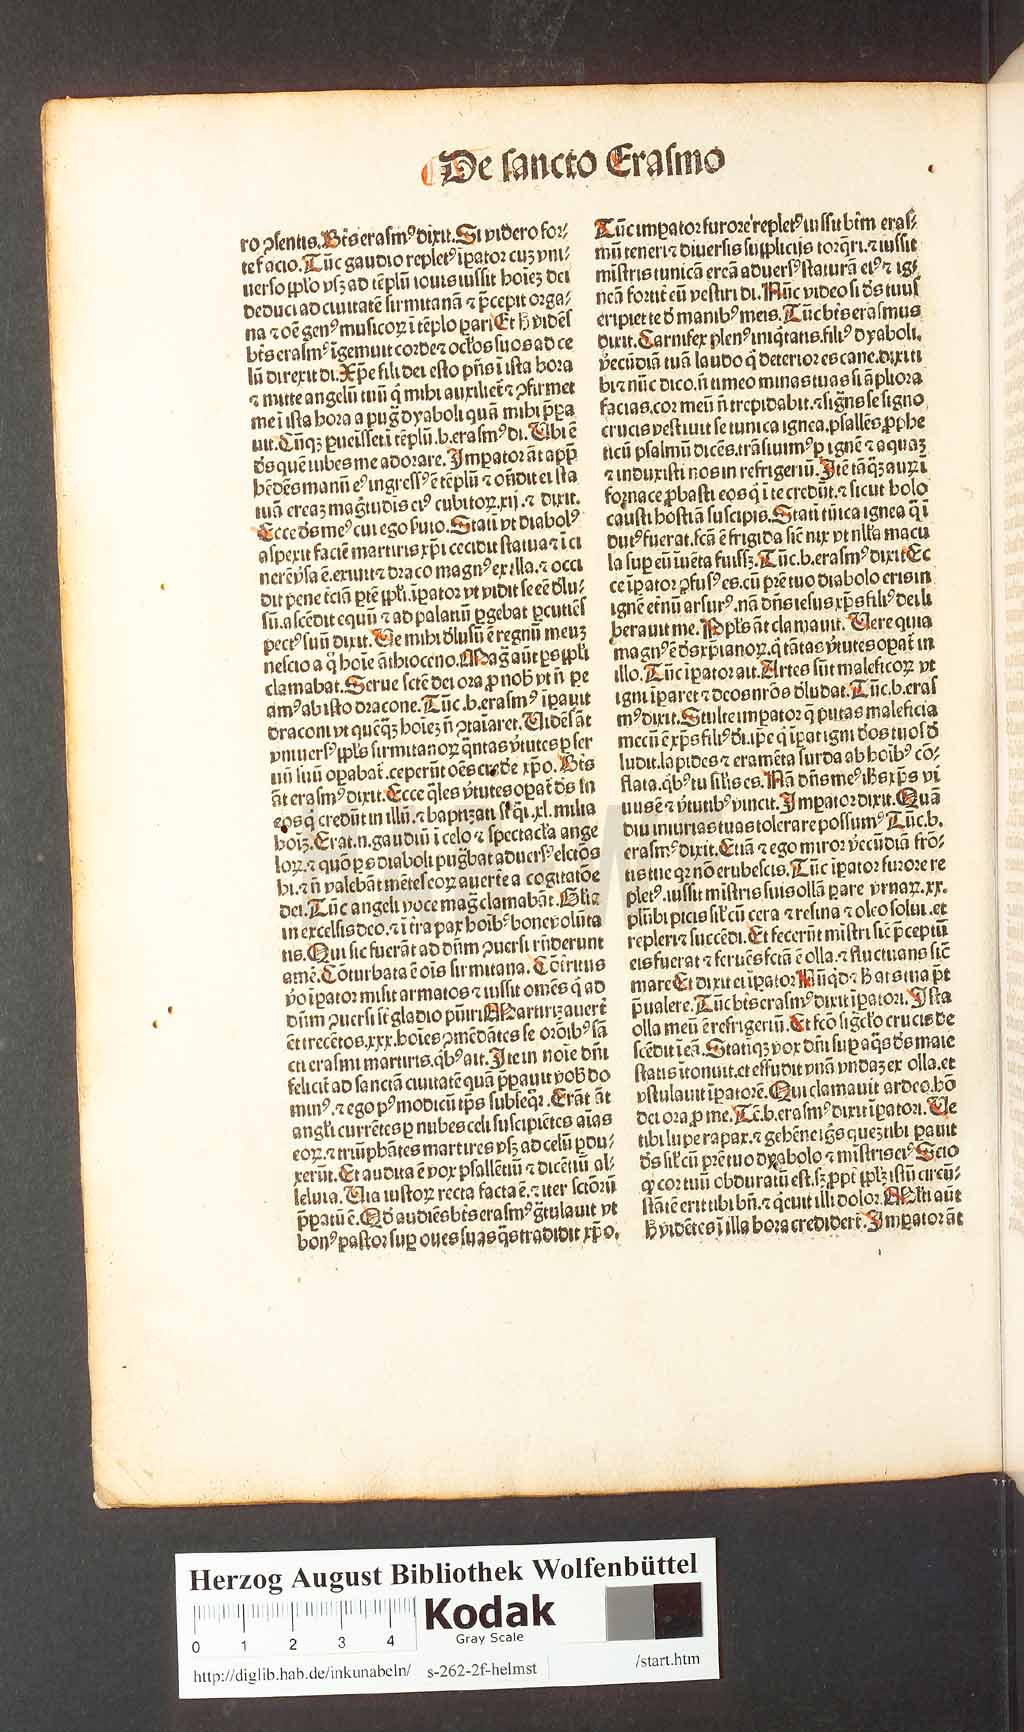 De sancto Erasmo
ro ꝯsentis. Bt̄s erasmꝰ dixit. Si videro for-
te facio. Tūc gaudio repletꝰ īpator cuȝ vni-
uerso pp̄lo vsꝫ ad tēplū iouis iussit hoīeȝ dei
deduci ad ciuitatē sirmitanā ⁊ p̄cepit orga-
na ⁊ oē genꝰ musicoꝝ ī tēplo pari Et h̄ vidēs
bt̄s erasmꝰ īgemuit corde ⁊ ocl̄os suos ad ce
lū direxit di. Xp̄e fili dei esto p̄n̄s ī ista hora
⁊ mitte angelū tuū q̄ mihi auxiliet̄ ⁊ ꝯfirmet
me ī ista hora a puḡ dyaboli quā mihi p̄pa
uit. Cūqꝫ ꝑueisset ī tēplū .b. erasmꝰ di. Ubi ē
d̄s quē iubes me adorare. Impator āt app̄
hēdēs manū eꝰ ingressꝰ ē tēplū ⁊ on̄dit ei sta
tuā ereaȝ maḡtudīs eiꝰ cubitoꝝ .xij. ⁊ dixit.
Ecce d̄s meꝰ cui ego ſuio. Statī vt diabolꝰ
aspexit faciē martiris xp̄i cecidit statua ⁊ ī ci
nerē v̄sa ē. exiuit ⁊ draco magnꝰ ex illa. ⁊ occi
dit pene t̄ciā ptē pp̄li. īpator vt vidit se eē d̄lu-
sū. ascēdit equū ⁊ ad palatiū ꝑgebat ꝑcutiēs
pectꝰ suū dixit. Ve mihi d̄lusū ē regnū meuȝ
nescio a q̄ hoīe āthioceno. Maḡ aūt ps pp̄li
clamabat. Serue scte dei ora ꝓ nob̄ vt n̄ pe
amꝰ ab isto dracone. Tūc .b. erasmꝰ īpauit
draconi vt quēqꝫ hoīeȝ n̄ ꝯtaīaret. Uidēs āt
vniuersꝰ pp̄ls sirmitanoꝝ q̄ntas v̄tutes ꝑ ser
uū suū opabat̄. ceperūt oēs cr̄de xp̄o. Bt̄s
āt erasmꝰ dixit. Ecce q̄les v̄tutes opat̄ d̄s in
eos q̄ credūt in illū. ⁊ baptizati sūt q̄i .xl. milia
hoīȝ. Erat .n. gaudiū ī celo ⁊ spectacl̄a ange
loꝝ. ⁊ quō ps diaboli puḡbat aduersꝰ elctōs
hi. ⁊ n̄ valebāt mētes eoꝝ auertē a cogitatōe
dei. Tūc angeli voce maḡ clamabāt. Gl̄ia
in excelsis deo. ⁊ ī t̄ra pax hoībꝰ bone volūta
tis. Qui sic fuerāt ad dn̄m ꝯuersi rn̄derunt
amē. Cōturbata ē oīs sirmitana. Cōtritus
v̄o īpator misit armatos ⁊ iussit omēs q̄ ad
dn̄m ꝯuersi sūt gladio pūiri Martirizauert̄
ēt trecētos .xxx. hoīes ꝯmēdātes se orōibꝰ sā
cti erasmi martiris. q̄bꝰ ait. Ite in noīe dn̄i
felicit̄ ad sanctā ciuitatē quā p̄pauit vob̄ do
minꝰ. ⁊ ego pꝰ modicū tp̄s subseq̄r. Erāt āt
angl̄i currētes ꝑ nubes celi suscipiētes aīas
eoꝝ. ⁊ triūphātes martires vsꝫ ad celū ꝑdu-
xerūt. Et audita ē vox psallētiū ⁊ dicētiū al-
leluia. Uia iustoꝝ recta facta ē. ⁊ iter sctōrū
p̄patū ē. Qd̄ audiēs bt̄s erasmꝰ ḡtulauit vt
bonꝰ pastor suꝑ oues suas q̄s tradidit xp̄o.
Tūc impator furore repletꝰ iussit bt̄m eras-
mū teneri ⁊ diuersis supplicijs torq̄ri. ⁊ iussit
mīstris tunicā ereā aduersꝰ staturā eiꝰ ⁊ ig-
neā fortit̄ eū vestiri di. Nūc video si d̄s tuus
eripiet te d̄ manibꝰ meis. Tūc bt̄s erasmus
dixit. Carnifex plenꝰ iniq̄tatis. filiꝰ dyaboli.
v̄ecūdiā tuā laudo q̄ deterior es cane. dixi ti
bi ⁊ nūc dico. n̄ timeo minas tuas si āpliora
facias. cor meū n̄ trepidabit. ⁊ sig̅ns se signo
crucis vestiuit se tunica ignea. psallēs ꝓphe
ticū psalmū dicēs. trāsiuimꝰ ꝑ ignē ⁊ aquaȝ
⁊ induxisti nos in refrigeriū. Itē tāqꝫ aurū ī
fornace ꝓbasti eos q̄ ī te credūt. ⁊ sicut holo
causti hostiā suscipis. Statī tūica ignea q̄ ī
dutꝰ fuerat. fcā ē frigida sic̄ nix vt nll̄a macu
la suꝑ eū īuēta fuissꝫ. Tūc .b. erasmꝰ dixit Ec
ce īpator ꝯfusꝰ es. cū pr̄e tuo diabolo eris in
ignē et nū arsurꝰ. nā dn̄s iesus xp̄s filiꝰ dei li
berauit me. Pp̄ls āt clamauit. Uere quia
magnꝰ ē d̄s xp̄ianoꝝ. q̄ tātas v̄tutes opat̄ in
illo. Tūc īpator ait. Artes sūt maleficoꝝ vt
igni īparet ⁊ deos nr̄os d̄ludat. Tūc .b. eras
mꝰ dixit. Stulte impator q̄ putas maleficia
mecū ē xp̄s filiꝰ d̄i. ip̄e q̄ īpat igni d̄os tuos d̄
ludit. lapides ⁊ eramēta surda ab hoībꝰ cō-
flata. q̄bꝰ tu silīs es. Nā dn̄s meꝰ ihs xp̄s vi
uus ē ⁊ v̄tutibꝰ vincit. Impator dixit. Quā
diu iniurias tuas tolerare possumꝰ Tūc .b.
erasmꝰ dixit. Etiā ⁊ ego miror v̄ecūdiā frō-
tis tue qr nō erubescis. Tūc īpator furore re
pletꝰ. iussit mīstris suis ollā ꝑare vrnaꝝ .xx.
plūbi picis sil̄ cū cera ⁊ resina ⁊ oleo solui. et
repleri ⁊ succēdi. Et fecerūt mīstri sic̄ p̄ceptū
eis fuerat ⁊ feruēs fctā ē olla. ⁊ fluctuans sic̄
mare Et dixit ei īpator Nūqd̄ ⁊ h̄ ars tua p̄t
p̄ualere. Tūc bt̄s erasmꝰ dixit īpatori. Ista
olla meū ē refrigeriū. Et fcō sig̅cl̄o crucis de
scēdit ī eā. Statīqꝫ vox dn̄i suꝑ aq̄s d̄s maie
statis ītonuit. et effudit vnā vndaȝ ex olla. et
vstulauit īpatorē. Qui clamauit ardeo. hō
dei ora ꝓ me. Tūc .b. erasmꝰ dixit īpatori. Ve
tibi lupe rapax. ⁊ gehēne ig̅s queȝ tibi pauit
d̄s sil̄ cū pr̄e tuo dyabolo ⁊ mīstris eiꝰ Scio
ꝙ cor tuū obduratū est. sꝫ ꝓpt̄ pp̄lȝ istū circū-
stātē erit tibi bn̄. ⁊ q̄cuit illi dolor. Ml̄ti aūt
h̄ vidētes ī illa hora credidert̄. Impator āt
Herzog August Bibliothek Wolfenbüttel
0 1 2 3 4
Kodak
Gray Scale
http://diglib.hab.de/inkunabeln/ s-262-2f-helmst /start.htm